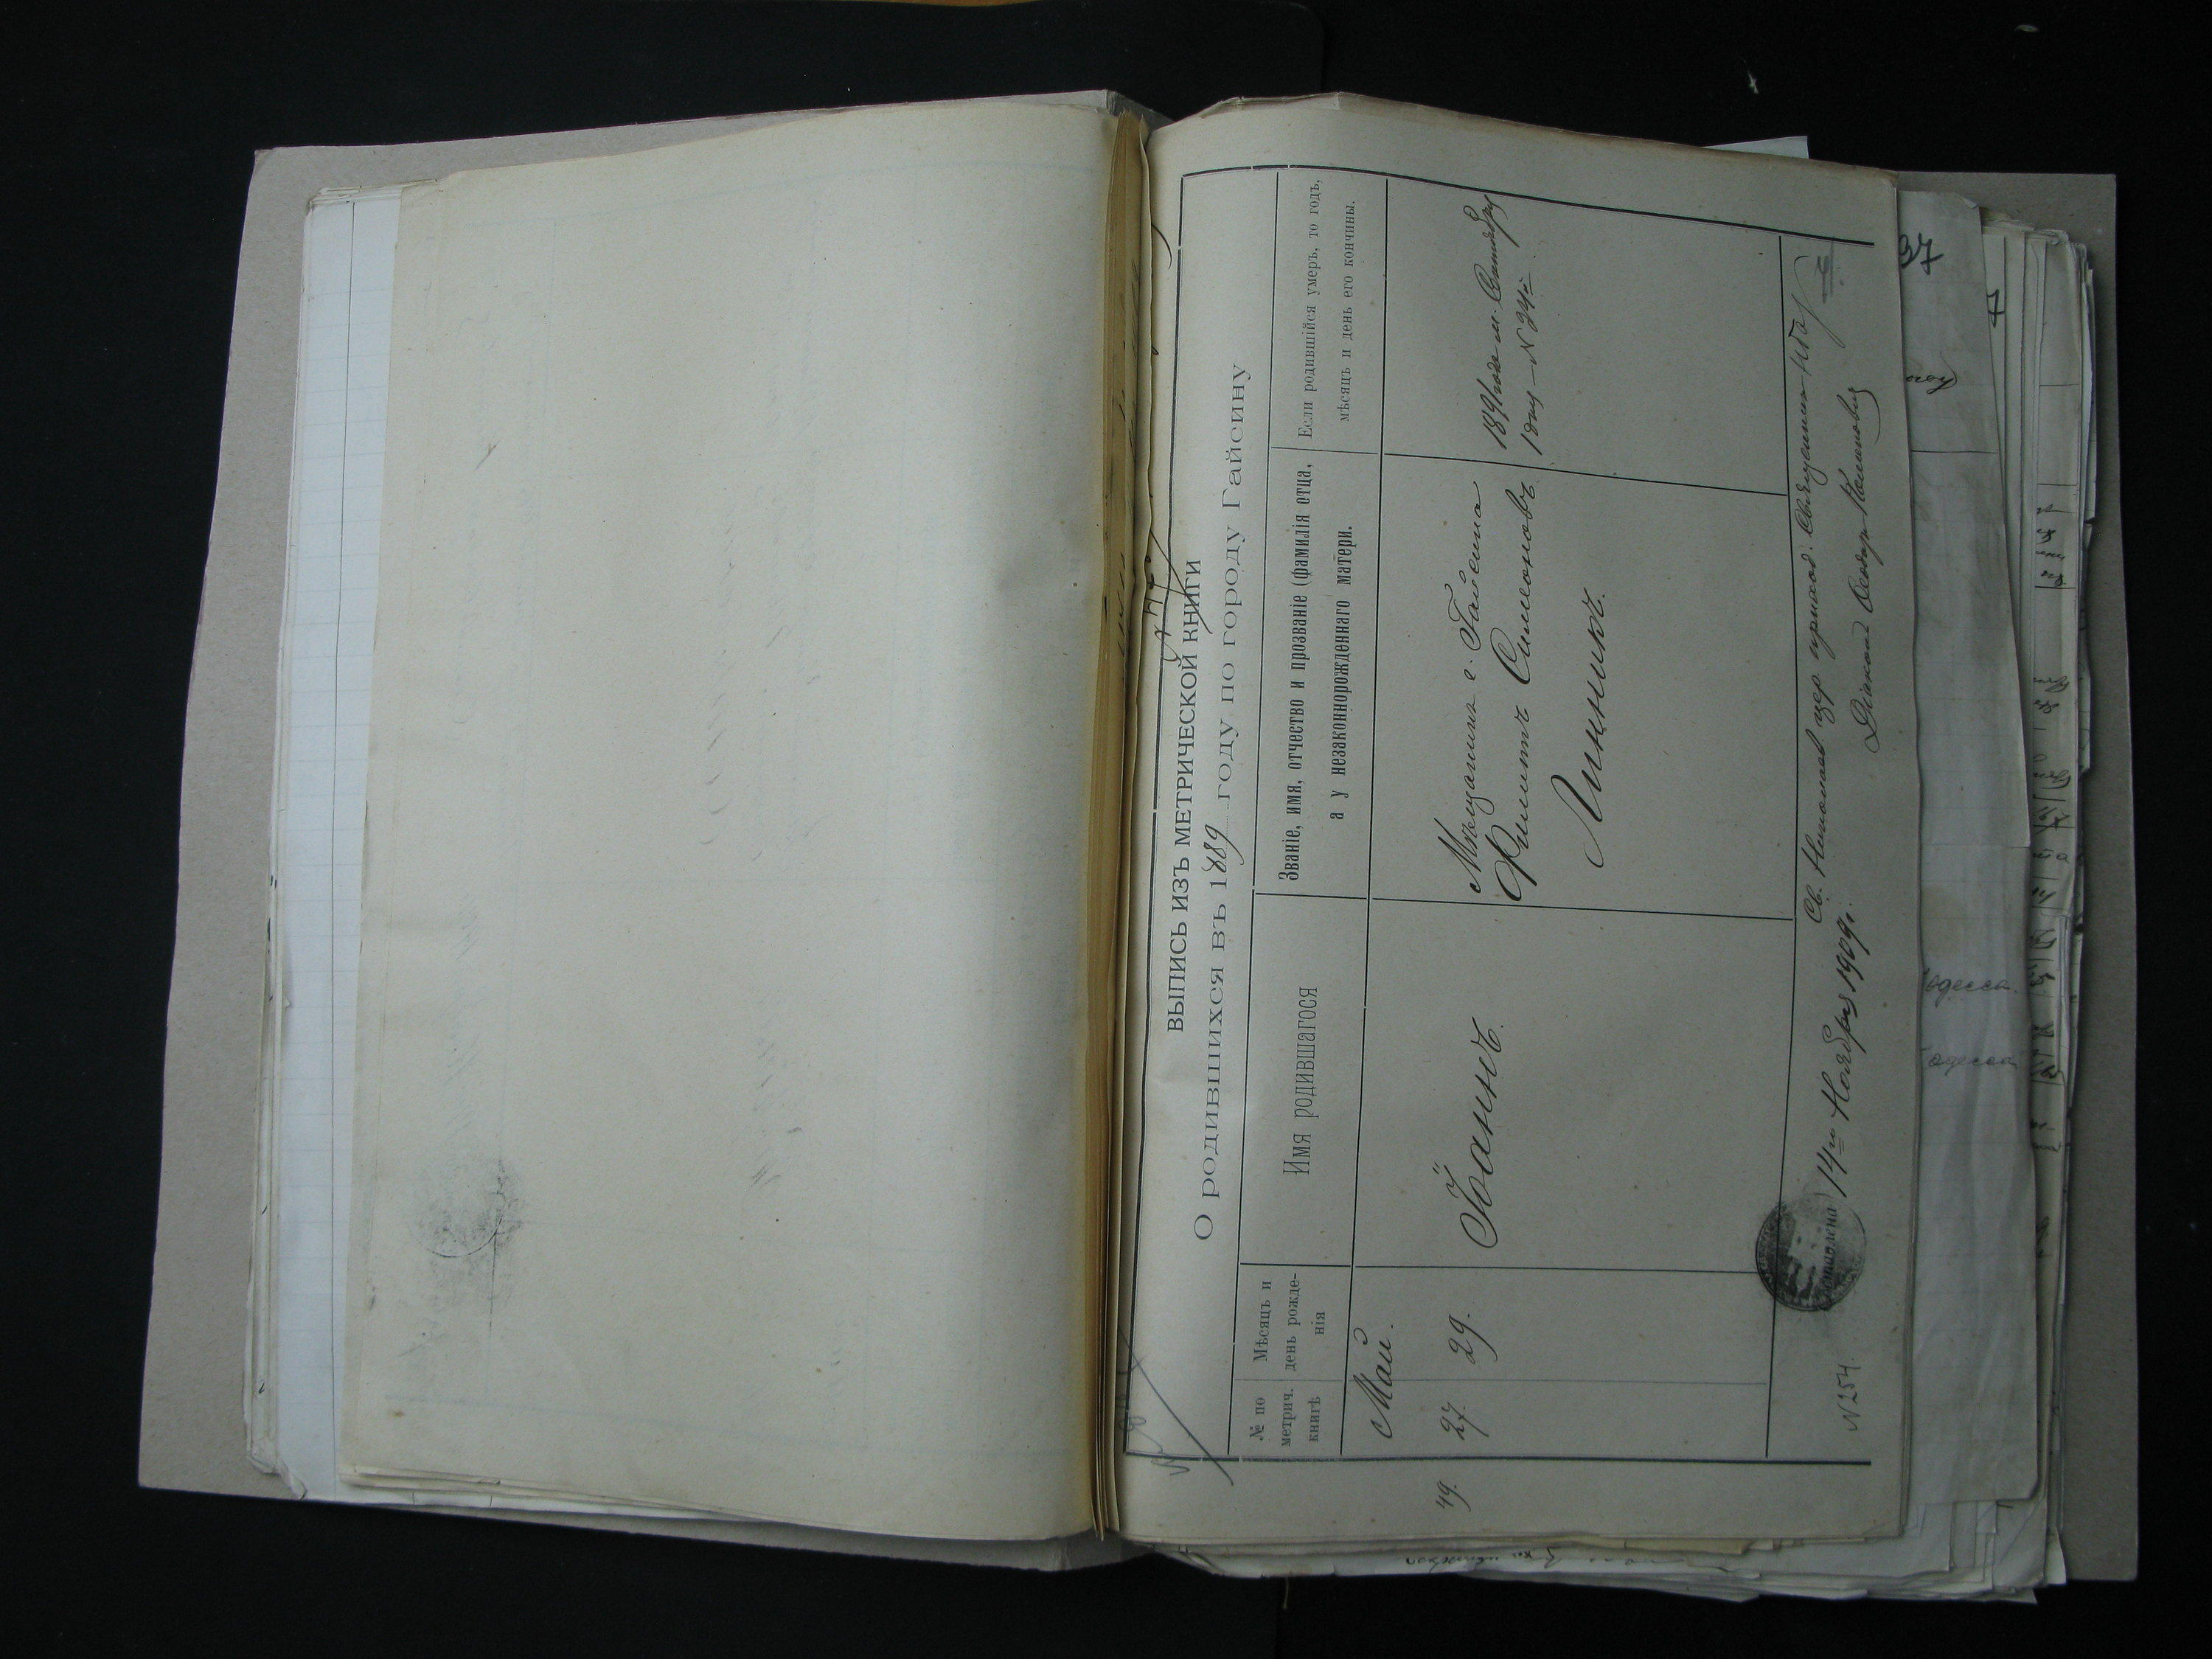 ВЫПИСЬ ИЗЪ МЕТРИЧЕСКОЙ КНИГИ
О родившихся въ 1889 году по городу Гайсину
№ по
метрич.
книгѣ
Мѣсяцъ и
день рожде-
нія
Имя родившагося
Званіе, имя, отчество и прозваніе (фамилія отца,
а у незаконнорожденнаго матери.
Если родившійся умеръ, то годъ,
мѣсяцъ и день его кончины.
Май.
49.
27.
29.
Іоаннъ
Мѣщанинъ г. Гайсина
Филиппъ Симеоновъ
Линникъ.
1891 года м. Сентября
1 дня
14го Ноября 1909 г.
Св. Николаев. цер. приход. Священникъ
Діаконъ Ѳеодоръ
№ 254.
37
7
одесса.
одесса